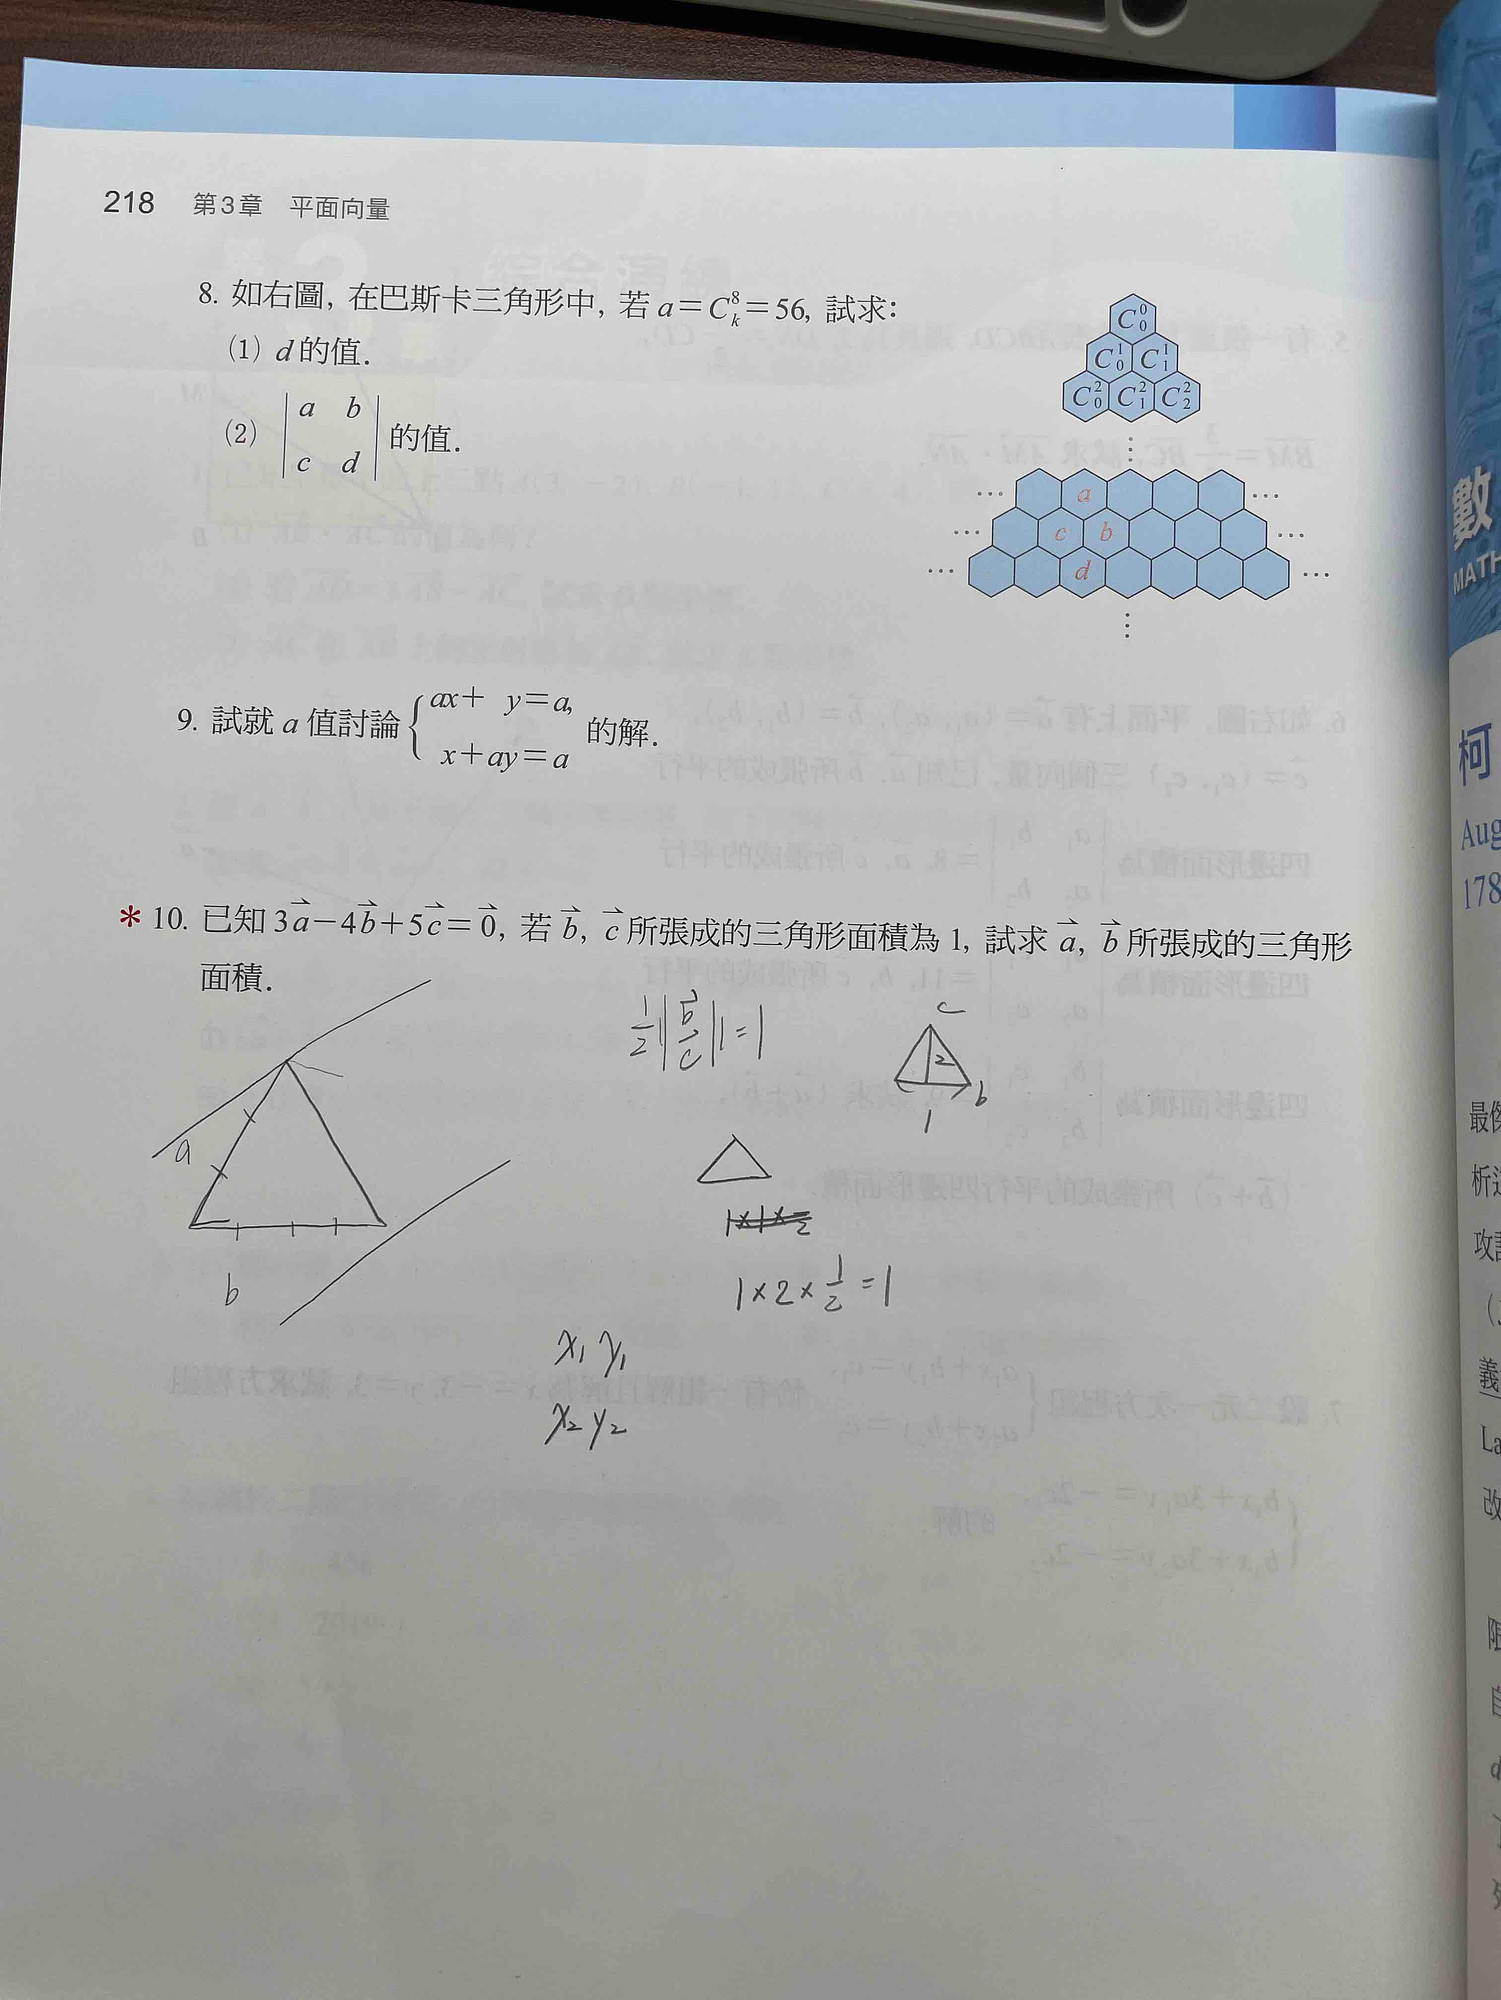 218 第3章 平面向量
8. 如右圖, 在巴斯卡三角形中, 若 a=C⁸ₖ=56, 試求:
(1) d 的值.
(2) | a b |
| c d | 的值.
C⁰₀
C¹₀ C¹₁
C²₀ C²₁ C²₂
⋮
… a …
… c b …
… d …
⋮
9. 試就 a 值討論 { ax+ y=a,
x+ay=a 的解.
* 10. 已知 3a⃗-4b⃗+5c⃗=0⃗, 若 b⃗, c⃗ 所張成的三角形面積為 1, 試求 a⃗, b⃗ 所張成的三角形
面積.
1/2 | b⃗ / c⃗ | = 1
c
2
b
1
a
b
1×2×1/2=1
x₁ y₁
x₂ y₂
數
MATH
柯
Aug
178
最傑
析
攻
義
La
改